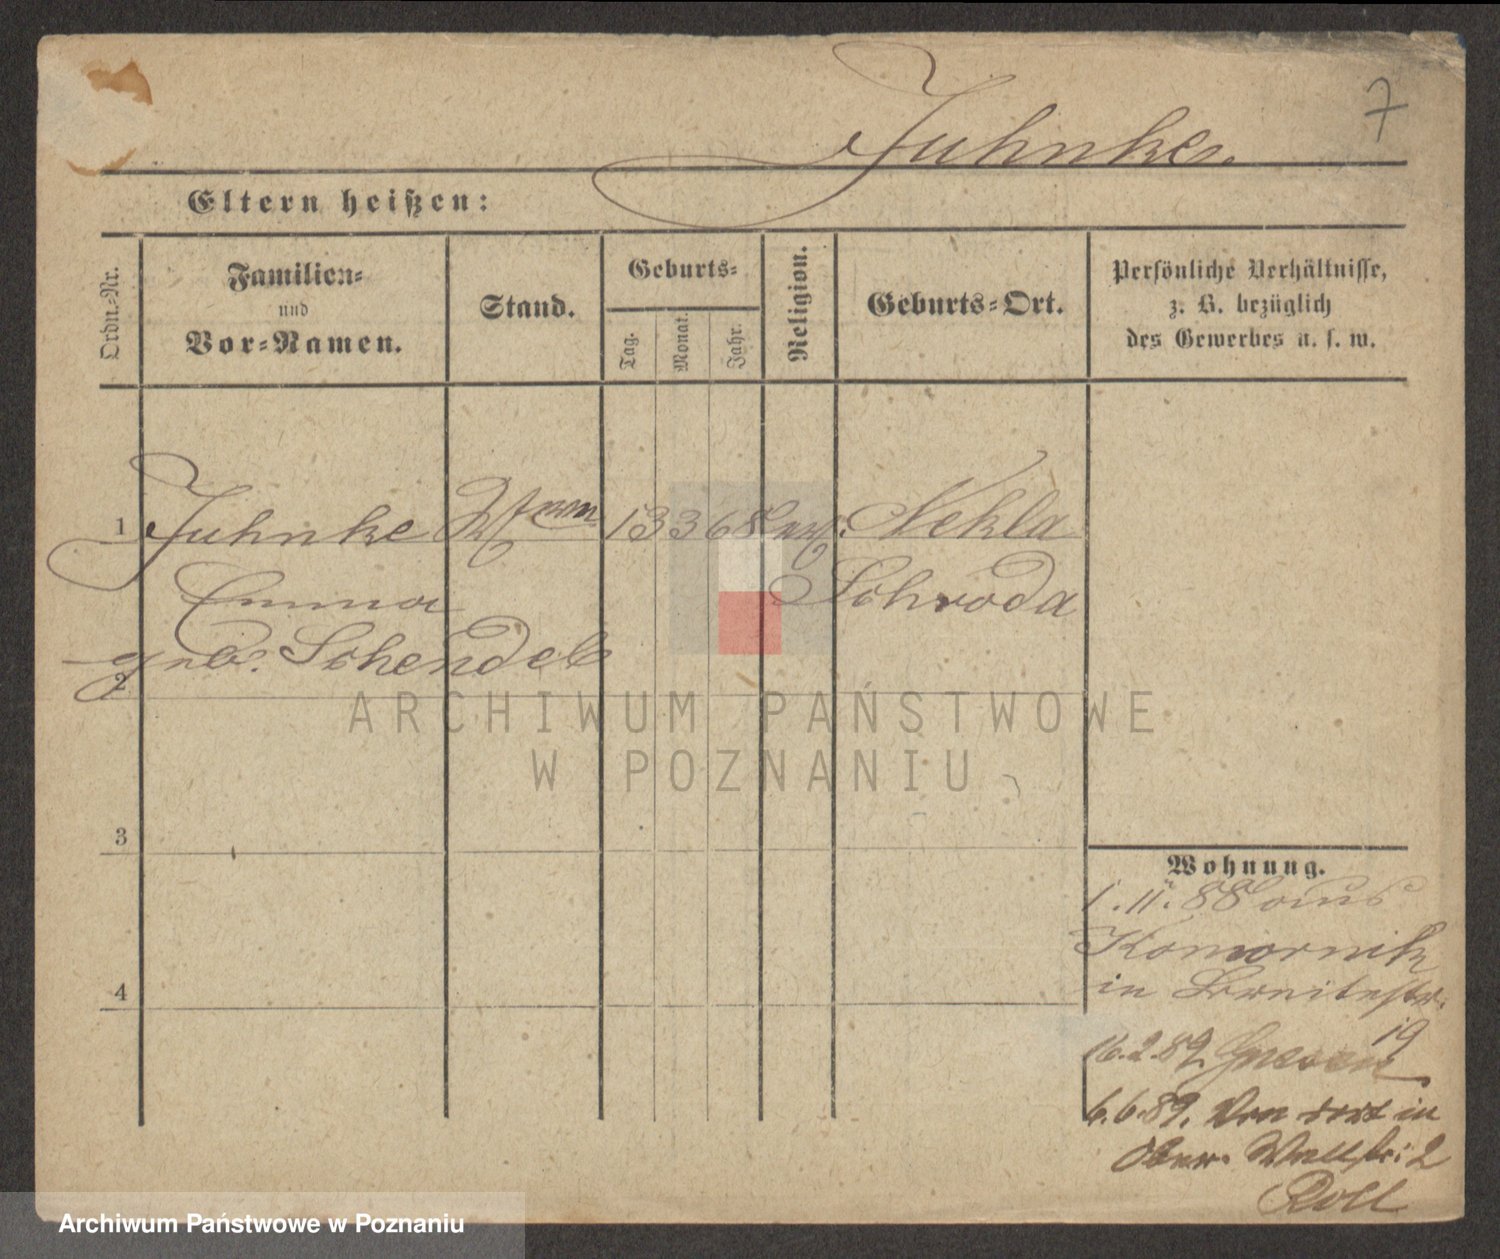 7
Juhnke.
Eltern heißen:
Ordn.-Nr.
Familien-
und
Vor-Namen.
Stand.
Geburts-
Tag.
Monat.
Jahr.
Religion.
Geburts-Ort.
Persönliche Verhältnisse,
z. B. bezüglich
des Gewerbes u. s. w.
1 Juhnke Wwe 13 3 68 ev. Nekla
Emma Schroda
geb. Schendel
2
3
4
Wohnung.
1.11.88 aus
Komornik
in Breitestr.
19
16.2.89. Gnesen
6.6.89. Von dort in
Ober. Wallstr. 2
ARCHIWUM PAŃSTWOWE
W POZNANIU
Archiwum Państwowe w Poznaniu